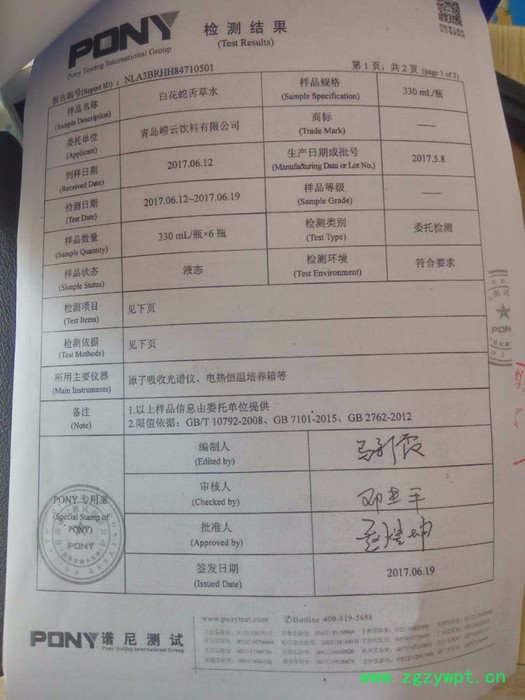 PONY
Pony Testing International Group
检 测 结 果
(Test Results)
报告编号(Report ID)：NLA3BRHH84710501
第 1 页，共 2 页 (page 1 of 2)
样品名称
(Sample Description)
白花蛇舌草水
样品规格
(Sample Specification)
330 mL/瓶
委托单位
(Applicant)
青岛崂云饮料有限公司
商标
(Trade Mark)
——
到样日期
(Received Date)
2017.06.12
生产日期或批号
(Manufacturing Date or Lot No.)
2017.5.8
检测日期
(Test Date)
2017.06.12~2017.06.19
样品等级
(Sample Grade)
——
样品数量
(Sample Quantity)
330 mL/瓶×6 瓶
检测类别
(Test Type)
委托检测
样品状态
(Simple Status)
液态
检测环境
(Test Environment)
符合要求
检测项目
(Test Items)
见下页
检测依据
(Test Methods)
见下页
所用主要仪器
(Main Instruments)
原子吸收光谱仪、电热恒温培养箱等
备注
(Note)
1.以上样品信息由委托单位提供
2.限值依据：GB/T 10792-2008、GB 7101-2015、GB 2762-2012
编制人
(Edited by)
审核人
(Checked by)
批准人
(Approved by)
签发日期
(Issued Date)
2017.06.19
PONY 专用章
(Special Stamp of
PONY)
PONY
PONY 谱尼测试
Pony Testing International Group
www.ponytest.com
Hotline 400-819-5688
www.zgzywpt.cn